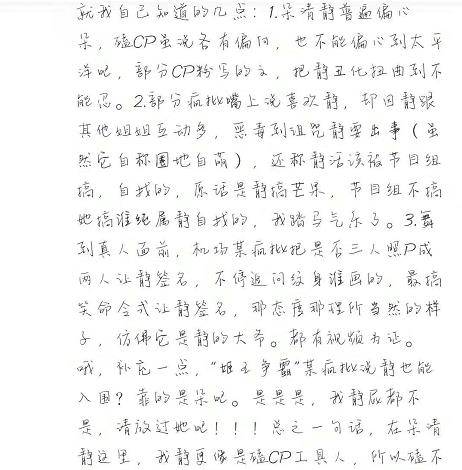 就我自己知道的几点：1.朵清静普遍偏心
朵，磕CP虽说各有偏向，也不能偏心到太平
洋吧，部分CP粉写的文，把静丑化扭曲到不
能忍。2.部分疯批嘴上说喜欢静，却因静跟
其他姐姐互动多，恶毒到诅咒静要出事（虽
然它自称圈地自萌），还称静活该被节目组
搞，自找的，原话是静搞芒果，节目组不搞
她搞谁纯属静自找的，我踏马气乐了。3.舞
到真人面前，机场某疯批把是否三人照P成
两人让静签名，不停追问纹身谁画的，最搞
笑命令式让静签名，那态度那理所当然的样
子，仿佛它是静的大爷。都有视频为证。
哦，补充一点，“姬王争霸”某疯批说静也能
入围？靠的是朵吧。是是是，我静屁都不
是，请放过她吧！！！总之一句话，在朵清
静这里，我静更像是磕CP工具人，所以磕不